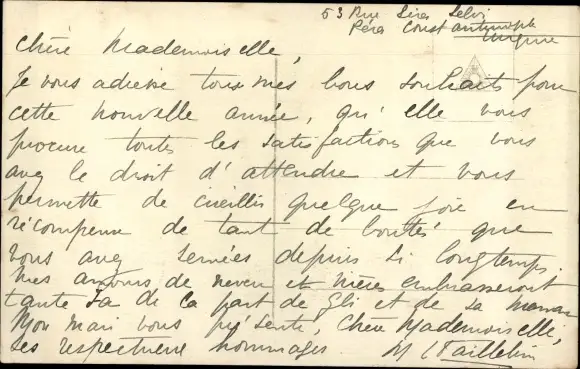 53 Rue Sira Selvi
Péra Constantinople
Chère Mademoiselle,
Je vous adresse tous mes bons souhaits pour
cette nouvelle année, qu'elle vous
procure toutes les satisfactions que vous
avez le droit d'attendre et vous
permette de cueillir quelque joie en
récompense de tant de bontés que
vous avez semées depuis si longtemps.
Mes amours de neveu et nièces embrasseront
tante de la part de et de sa maman
Mon mari vous présente, Chère Mademoiselle,
ses respectueux hommages M